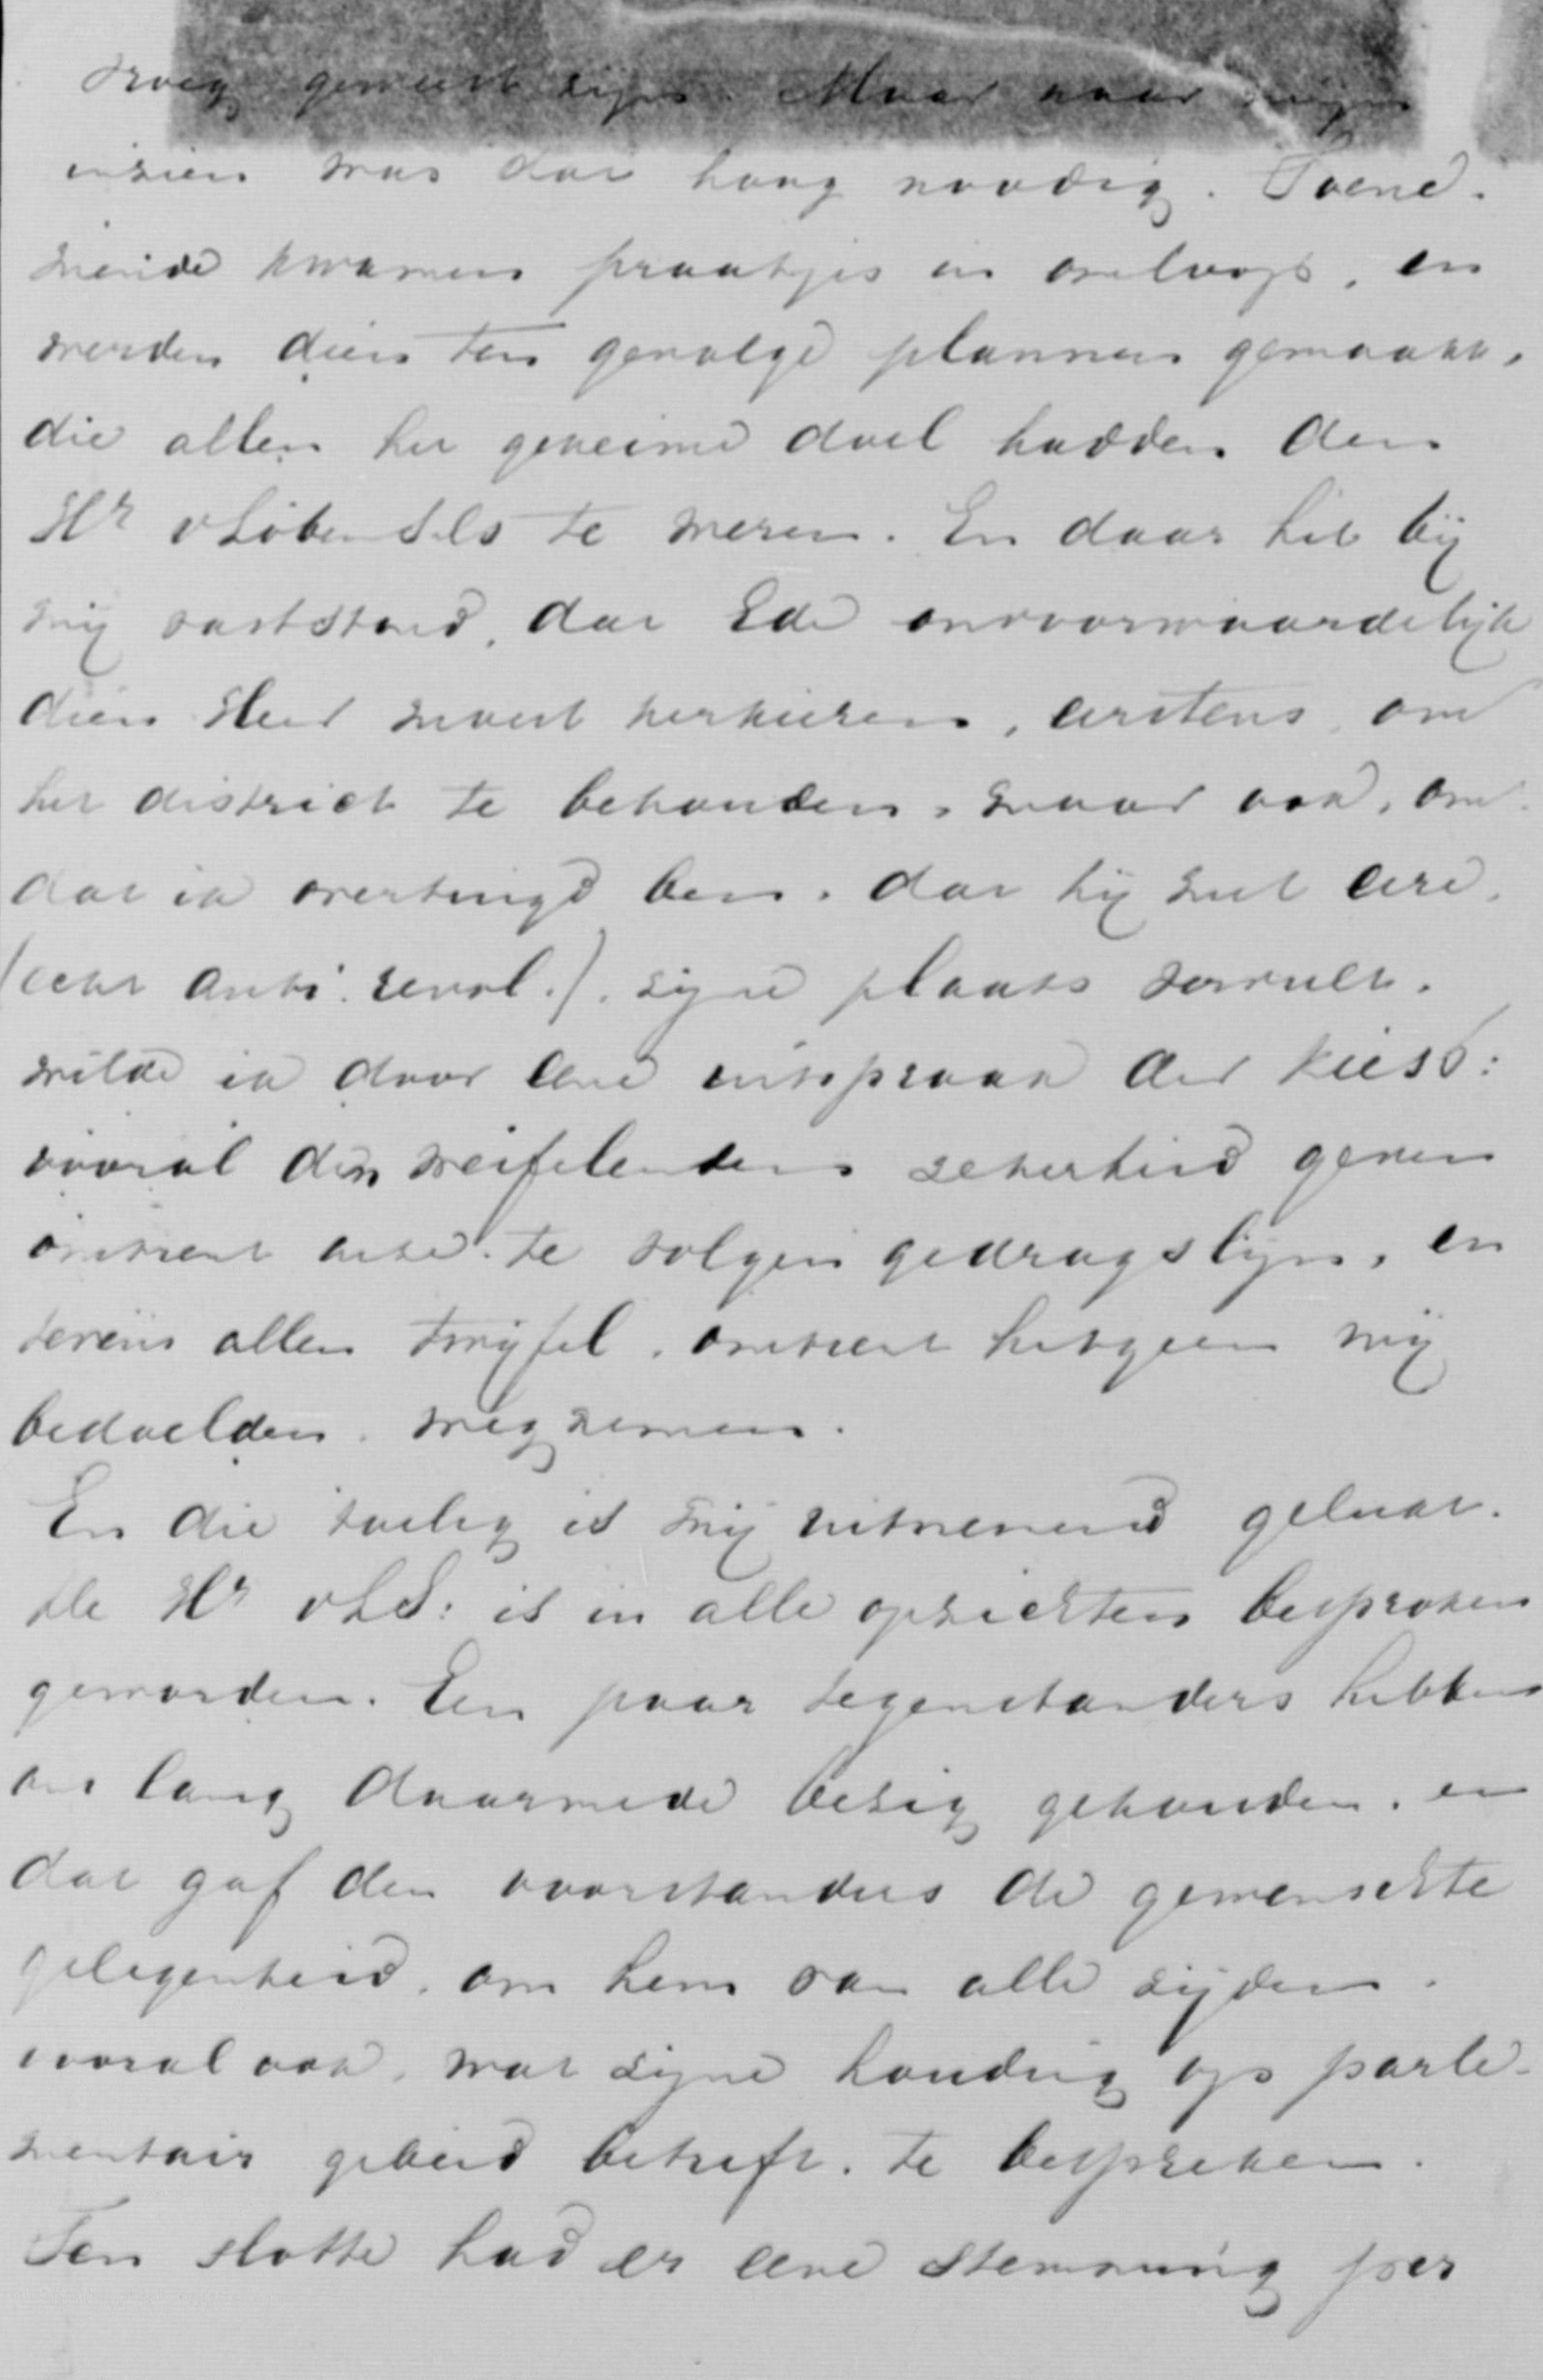 vroeg geweest zijn. Maar naar mijn
inzien was dat hoog noodig. Toene-
mende kwamen praatjes in omloop, en
werden dien ten gevolge plannen gemaakt,
die allen het geheime doel hadden den
Hr v Löben Sels te weren. En daar het bij
mij vaststond, dat Ede onvoorwaardelijk
dien Heer moest herkiezen, eerstens om
het district te behouden, maar ook, om-
dat ik overtuigd ben, dat hij met eere,
(echt anti. revol.), zijne plaats vervult.
wilde ik door eene uitspraak der kiesv:
vooral den weifelenden zekerheid geven
omtrent onze te volgen gedragslijn, en
tevens allen twijfel, omtrent hetgeen wij
bedoelden, wegnemen.
En die toeleg is mij uitnemend gelukt.
De Hr v L S: is in alle opzichten besproken
geworden. Een paar tegenstanders hebben
ons lang daarmede bezig gehouden, en
dat gaf den voorstanders de gewenschte
gelegenheid, om hem van alle zijden,
vooral ook, wat zijne houding op parle-
mentair gebied betreft, te bespreken.
Ten slotte had er eene stemming per